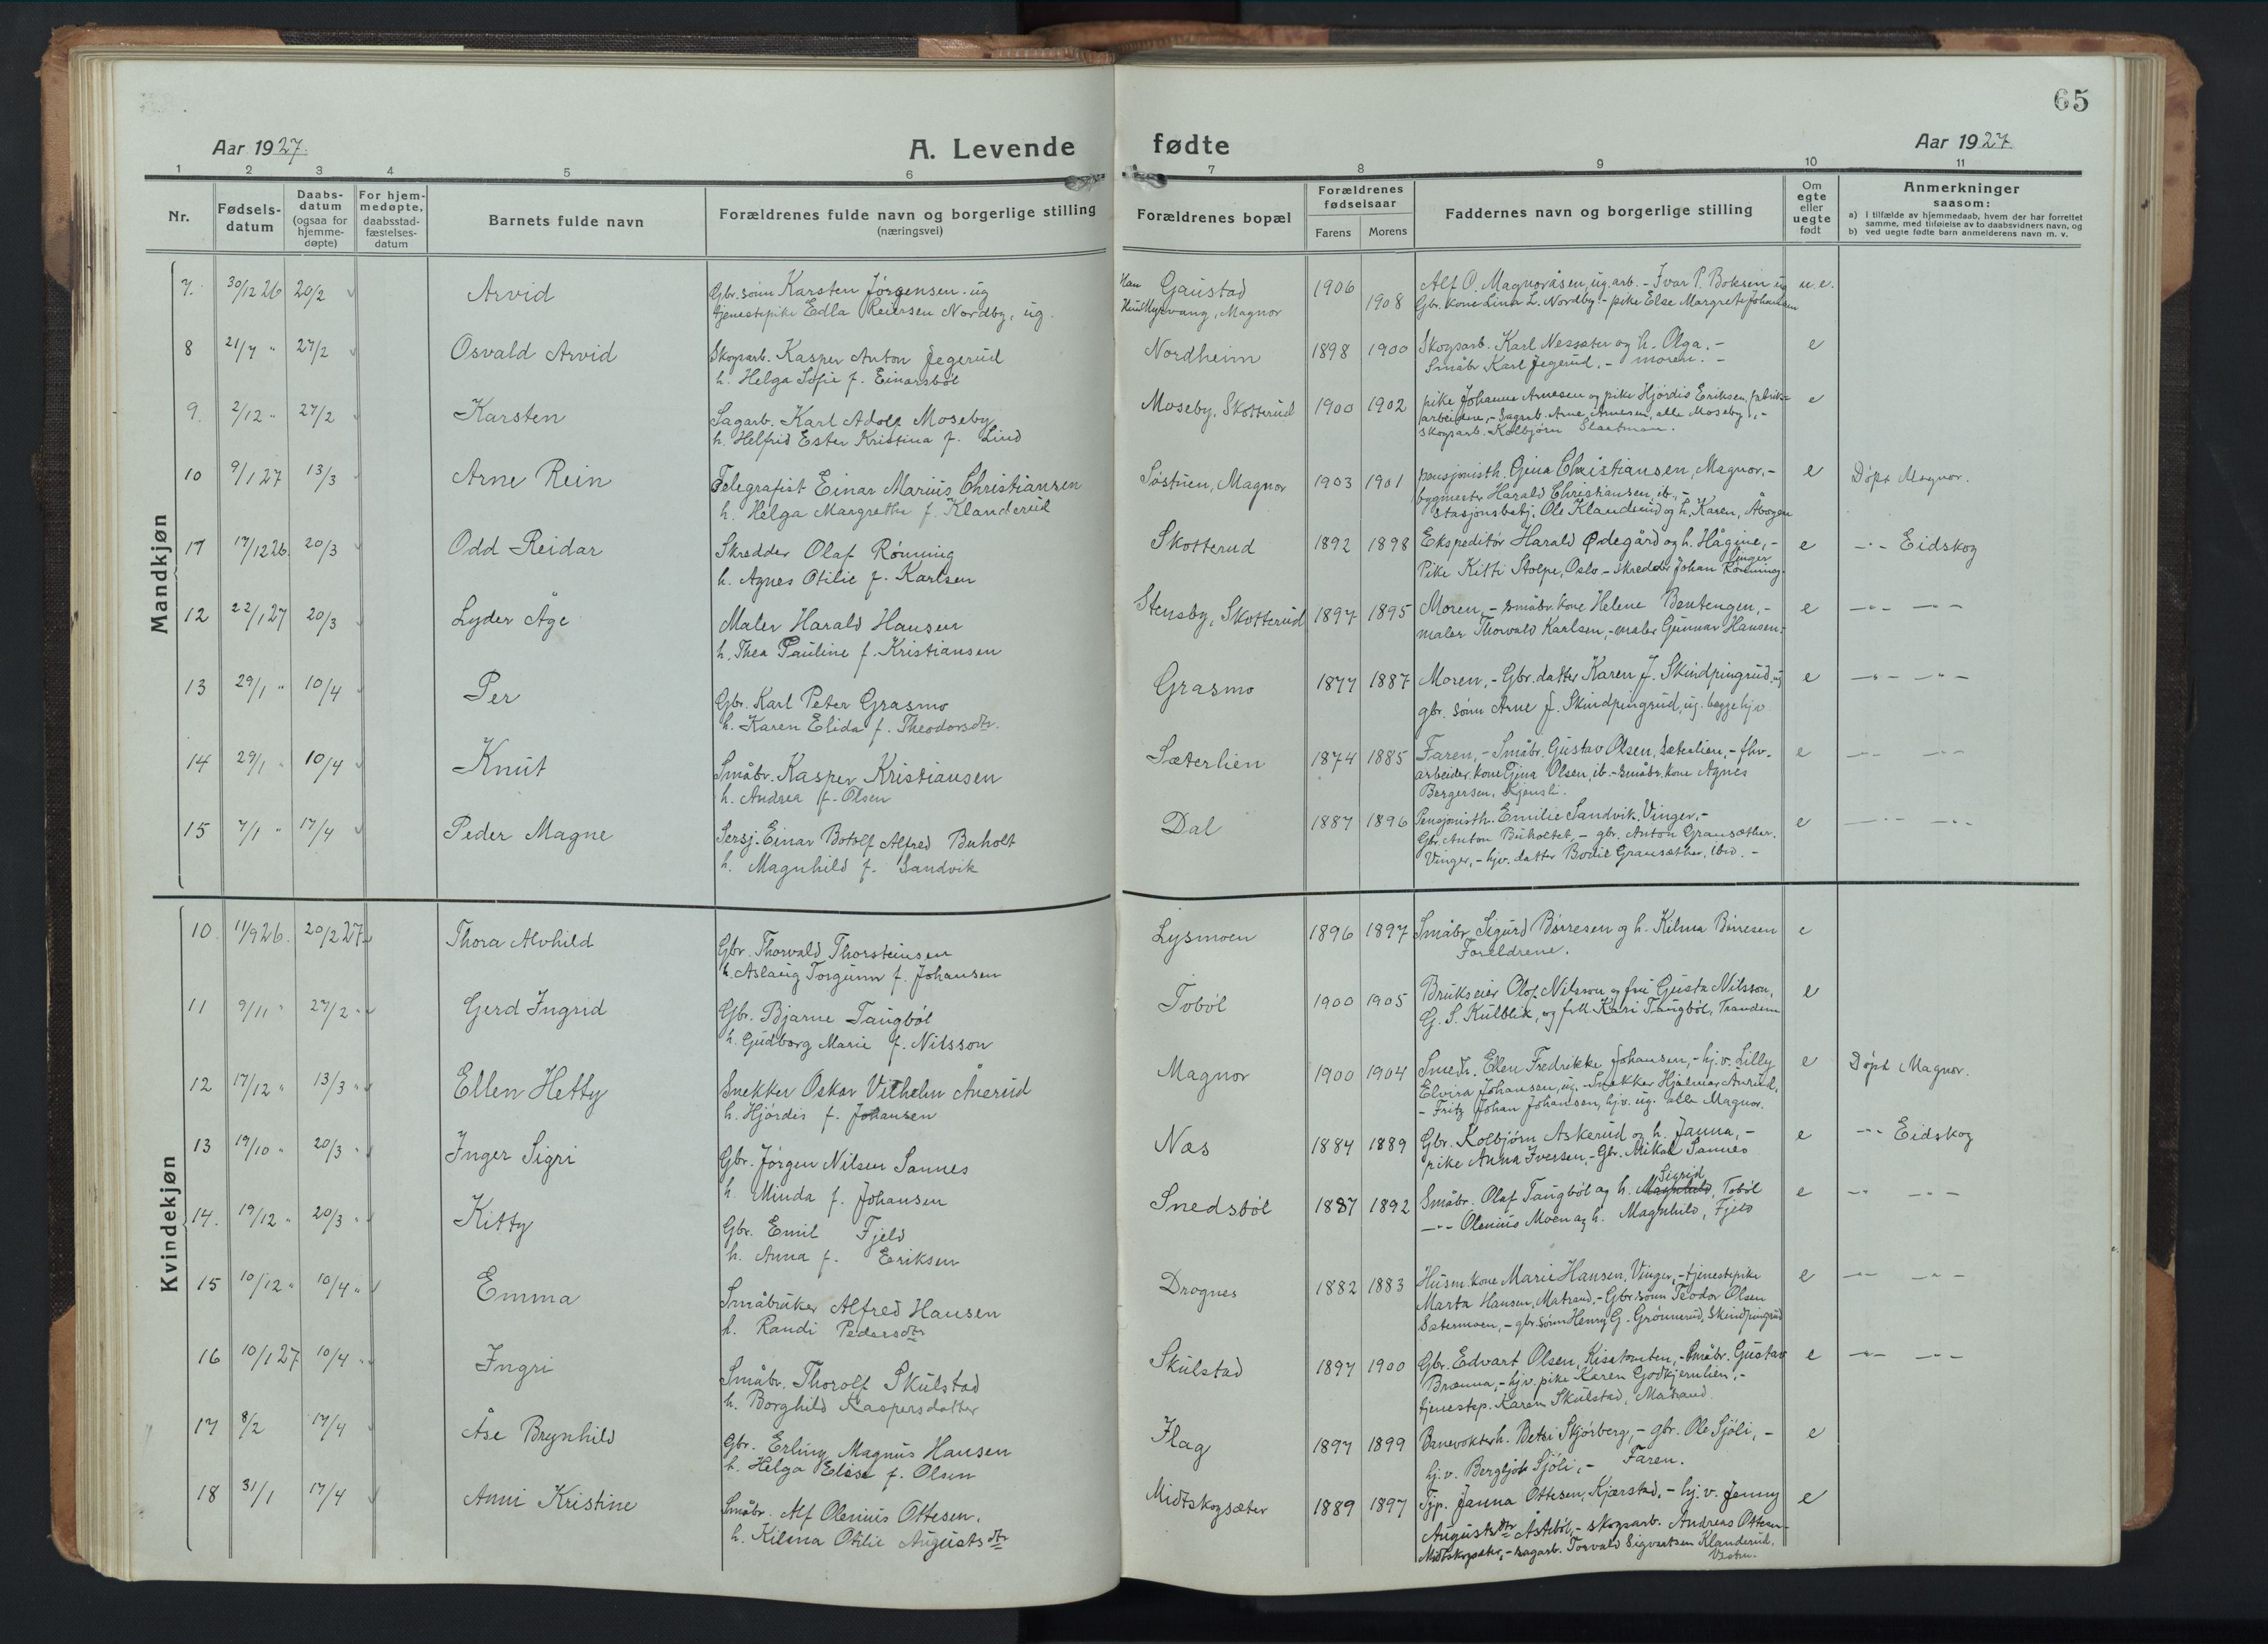 65
Aar 1927. A. Levende fødte Aar 1927
1 2 3 4 5 6 7 8 9 10 11
Nr. Fødsels-datum Daabs-datum (ogsaa for hjemme-døpte) For hjem-medøpte, daabsstad-fæstelses-datum Barnets fulde navn Forældrenes fulde navn og borgerlige stilling (næringsvei) Forældrenes bopæl Forældrenes fødselsaar Farens Morens Faddernes navn og borgerlige stilling Om egte eller uegte født Anmerkninger saasom:
a) I tilfælde av hjemmedaab, hvem der har forrettet samme, med tilføielse av to daabsvidners navn, og
b) ved uegte fødte barn anmelderens navn m. v.
Mandkjøn
7. 30/12 26 20/2 Arvid Gbr. sønn Karsten Jörgensen. ug Han Gaustad 1906 Alf O. Magnoråsen, ug. arb. - Ivar P. Boksen ug u. e.
tjenestepike Edla Reiersen Nordby, ug. Myrvang, Magnor 1908 Gbr. kone Lina L. Nordby. - pike Else Margrete Johansen
8 21/7 " 27/2 Osvald Arvid Skogsarb. Kasper Anton Jegerud Nordheim 1898 1900 Skogsarb. Karl Nessæter og h. Olga. - e
h. Helga Sofie f. Einarsböl Småbr Karl Jegerud. - moren. -
9. 2/12 " 27/2 Karsten Sagarb. Karl Adolf Moseby Moseby, Skotterud 1900 1902 pike Johanne Arnesen og pike Hjördis Eriksen, fabrik= e
h. Helfrid Ester Kristina f. Lind arbeidere, - Sagarb. Arne Arnesen, alle Moseby, -
skogsarb. Kolbjörn Slaatmoen.
10 9/1 27 13/3 Arne Rein Telegrafist Einar Marius Christiansen Söstuen, Magnor 1903 1901 pensjonisth. Gina Christiansen, Magnor. - e Döpt Magnor.
h. Helga Margrethe f. Klanderud bygmester Harald Christiansen, ib., -
stasjonsbetj. Ole Klanderud og h. Karen, Åbogen
17 17/12 26. 20/3 Odd Reidar Skredder Olaf Rønning Skotterud 1892 1898 Ekspeditör Harald Ødegård og h. Hågine, - e -"- Eidskog
h. Agnes Otilie f. Karlsen Pike Kitti Stolpe, Oslo - skredder Johan Rönning. Vinger
12 22/1 27 20/3 Lyder Åge Maler Harald Hansen Stensby, Skotterud 1897 1895 Moren, - småbr. kone Helene Bentengen, - e -"- -"-
h. Thea Pauline f. Kristiansen maler Thorvald Karlsen, - maler Gunnar Hansen. -
13 29/1 " 10/4 Per Gbr. Karl Peter Grasmo Grasmo 1877 1887 Moren, - Gbr. datter Karen J. Skindpungrud. ug e -"- -"-
h. Karen Elida f. Theodorsdtr. gbr. sönn Arne J. Skindpungrud, ug. begge hjv
14 29/1 " 10/4 Knut Småbr. Kasper Kristiansen Sæterlien 1874 1885 Faren, - Småbr. Gustav Olsen, Sæterlien, - fhv. e -"- -"-
h. Andrea f. Olsen arbeider. kone Gina Olsen, ib. - småbr. kone Agnes
Bergersen,
15 7/1 " 17/4 Peder Magne Sersj. Einar Botolf Alfred Buholt Dal 1887 1896 Pensjonisth. Emilie Sandvik, Vinger, - e -"- -"-
h. Magnhild f. Sandvik Gbr. Anton Buholtet, - gbr. Anton Gransæther.
Vinger, - hjv. datter Bodil Gransæther, ibid. -
Kvindekjøn
10. 11/9 26. 20/2 27. Thora Alvhild Gbr. Thorvald Thorsteinsen Lysmoen 1896 1897 Småbr. Sigurd Børresen og h. Kilma Børresen e
h. Aslaug Torgunn f. Johansen Foreldrene.
11 9/11 " 27/2 " Gerd Ingrid Gbr. Bjarne Taugböl Toböl 1900 1905 Brukseier Olof Nilsson og frue Gusta Nilsson, e
h. Gudborg Marie f. Nilsson G. S. Kulblik, og frk Kari Taugböl, Trandem
12 17/12 " 13/3 " Ellen Hetty Snekker Oskar Vilhelm Ånerud Magnor 1900 1904 Smedh. Ellen Fredrikke Johansen, - hj. v. Lilly e Döpt Magnor.
h. Hjördis f. Johansen Elvira Johansen, ug. - Snekker Hjalmar Aurud.
- Fritz Johan Johansen, hj.v. ug. alle Magnor.
13 19/10 " 20/3 " Inger Sigri Gbr. Jörgen Nilsen Sannes Næs 1884 1889 Gbr. Kolbjörn Askerud og h. Janna, - e -"- Eidskog
h. Minda f. Johansen pike Anna Iversen, - Gbr. Mikal Sannes
14. 19/12 " 20/3 " Kitty Gbr. Emil Fjeld Snedsböl 1887 1892 Småbr. Olaf Taugböl og h. Magnhild Sigrid, Toböl e -"- -"-
h. Anna f. Eriksen -"- Olenius Moen og h. Magnhild, Fjeld
15 10/12 " 10/4 " Emma Småbruker Alfred Hansen Drognes 1882 1883 Husm. kone Marie Hansen, Vinger, - tjenestepike e -"- -"-
h. Randi Pedersdtr Marta Hansen, Matrand, - Gbr. sönn Teodor Olsen
Sætermoen, - gbr. sönn Henry G. Grönnerud, Skindpungrud
16 10/1 27 10/4 " Ingri Småbr. Thorolf Skulstad Skulstad 1897 1900 Gbr. Edvart Olsen, Kisatomten, - Småbr. Gustav e -"- -"-
h. Borghild Kaspersdatter Brænna, - hjv. pike Karen Godkjernlien, -
tjenestep. Karen Skulstad, Matrand.
17 8/2 17/4 Åse Brynhild Gbr. Erling Magnus Hansen Flag 1897 1899 Banevokterh. Betsi Skjörberg, - gbr. Ole Sjöli, - e
h. Helga Elise f. Olsen hj. v. Bergljot Sjöli, - Faren.
18 31/1 17/4 Anni Kristine Småbr. Alf Olenius Ottesen. Midtskogsæter 1889 1897 Tjp. Janna Ottesen, Kjærstad, - hj. v. Jenny e
h. Kilma Otilie Augustsdtr Augustsdtr Åsteböl, - skogsarb. Andreas Ottesen -
Midtskogsæter, - sagarb. Torvald Sigvartsen Klanderud.